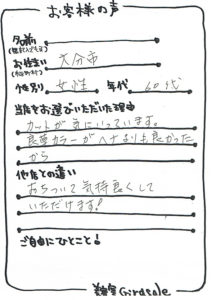 お客様の声
お名前
お住まい 大分市
性別 女性 年代 60代
当店をお選びいただいた理由
カットが気にいっています。
良草カラーがヘナよりも良かった
から
他店との違い
おちついて気持良くして
いただけます!
ご自由にひとこと!
美容室Girasole